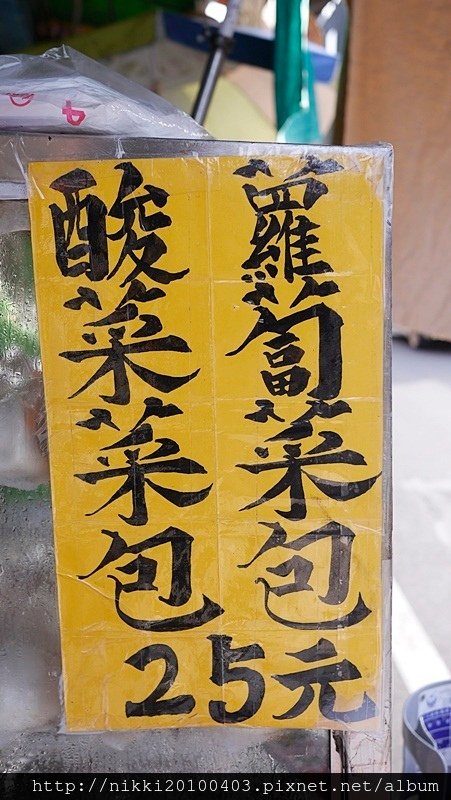 蘿蔔菜包
酸菜菜包
25元
http://nikki20100403.pixnet.net/album